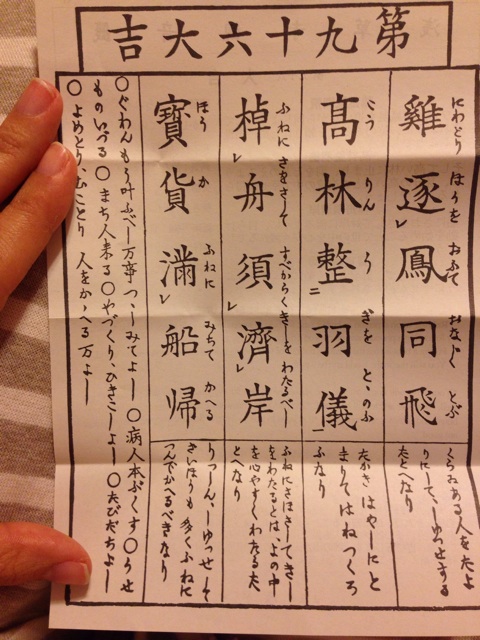 第九十六大吉
にわとり ほうを おふて おなじく とぶ
雞逐鳳同飛
くらゐある人をたよ
りにして、しゆつせする
たとへなり
こう りん う ぎを とゝのふ
髙林整羽儀
たかきはやしにと
まりてはねつくろ
ふなり
ふねに さをさして すべからくきしを わたるべし
棹舟須濟岸
ふねにさほさしてきし
をわたるとは、よの中
を心やすくわたるた
とへなり
ほう か ふねに みちて かへる
寶貨滿船帰
りつしん、しゆつせして
さいほうも多くふねに
つんでかへるべきなり
○ぐわんもう叶ふべし万事つゝしみてよし○病人本ぶくす○うせ
ものいづる○まち人来る○やづくり、ひきこしよし○たびだちよし
○よめとり、むことり 人をかゝへる万よし